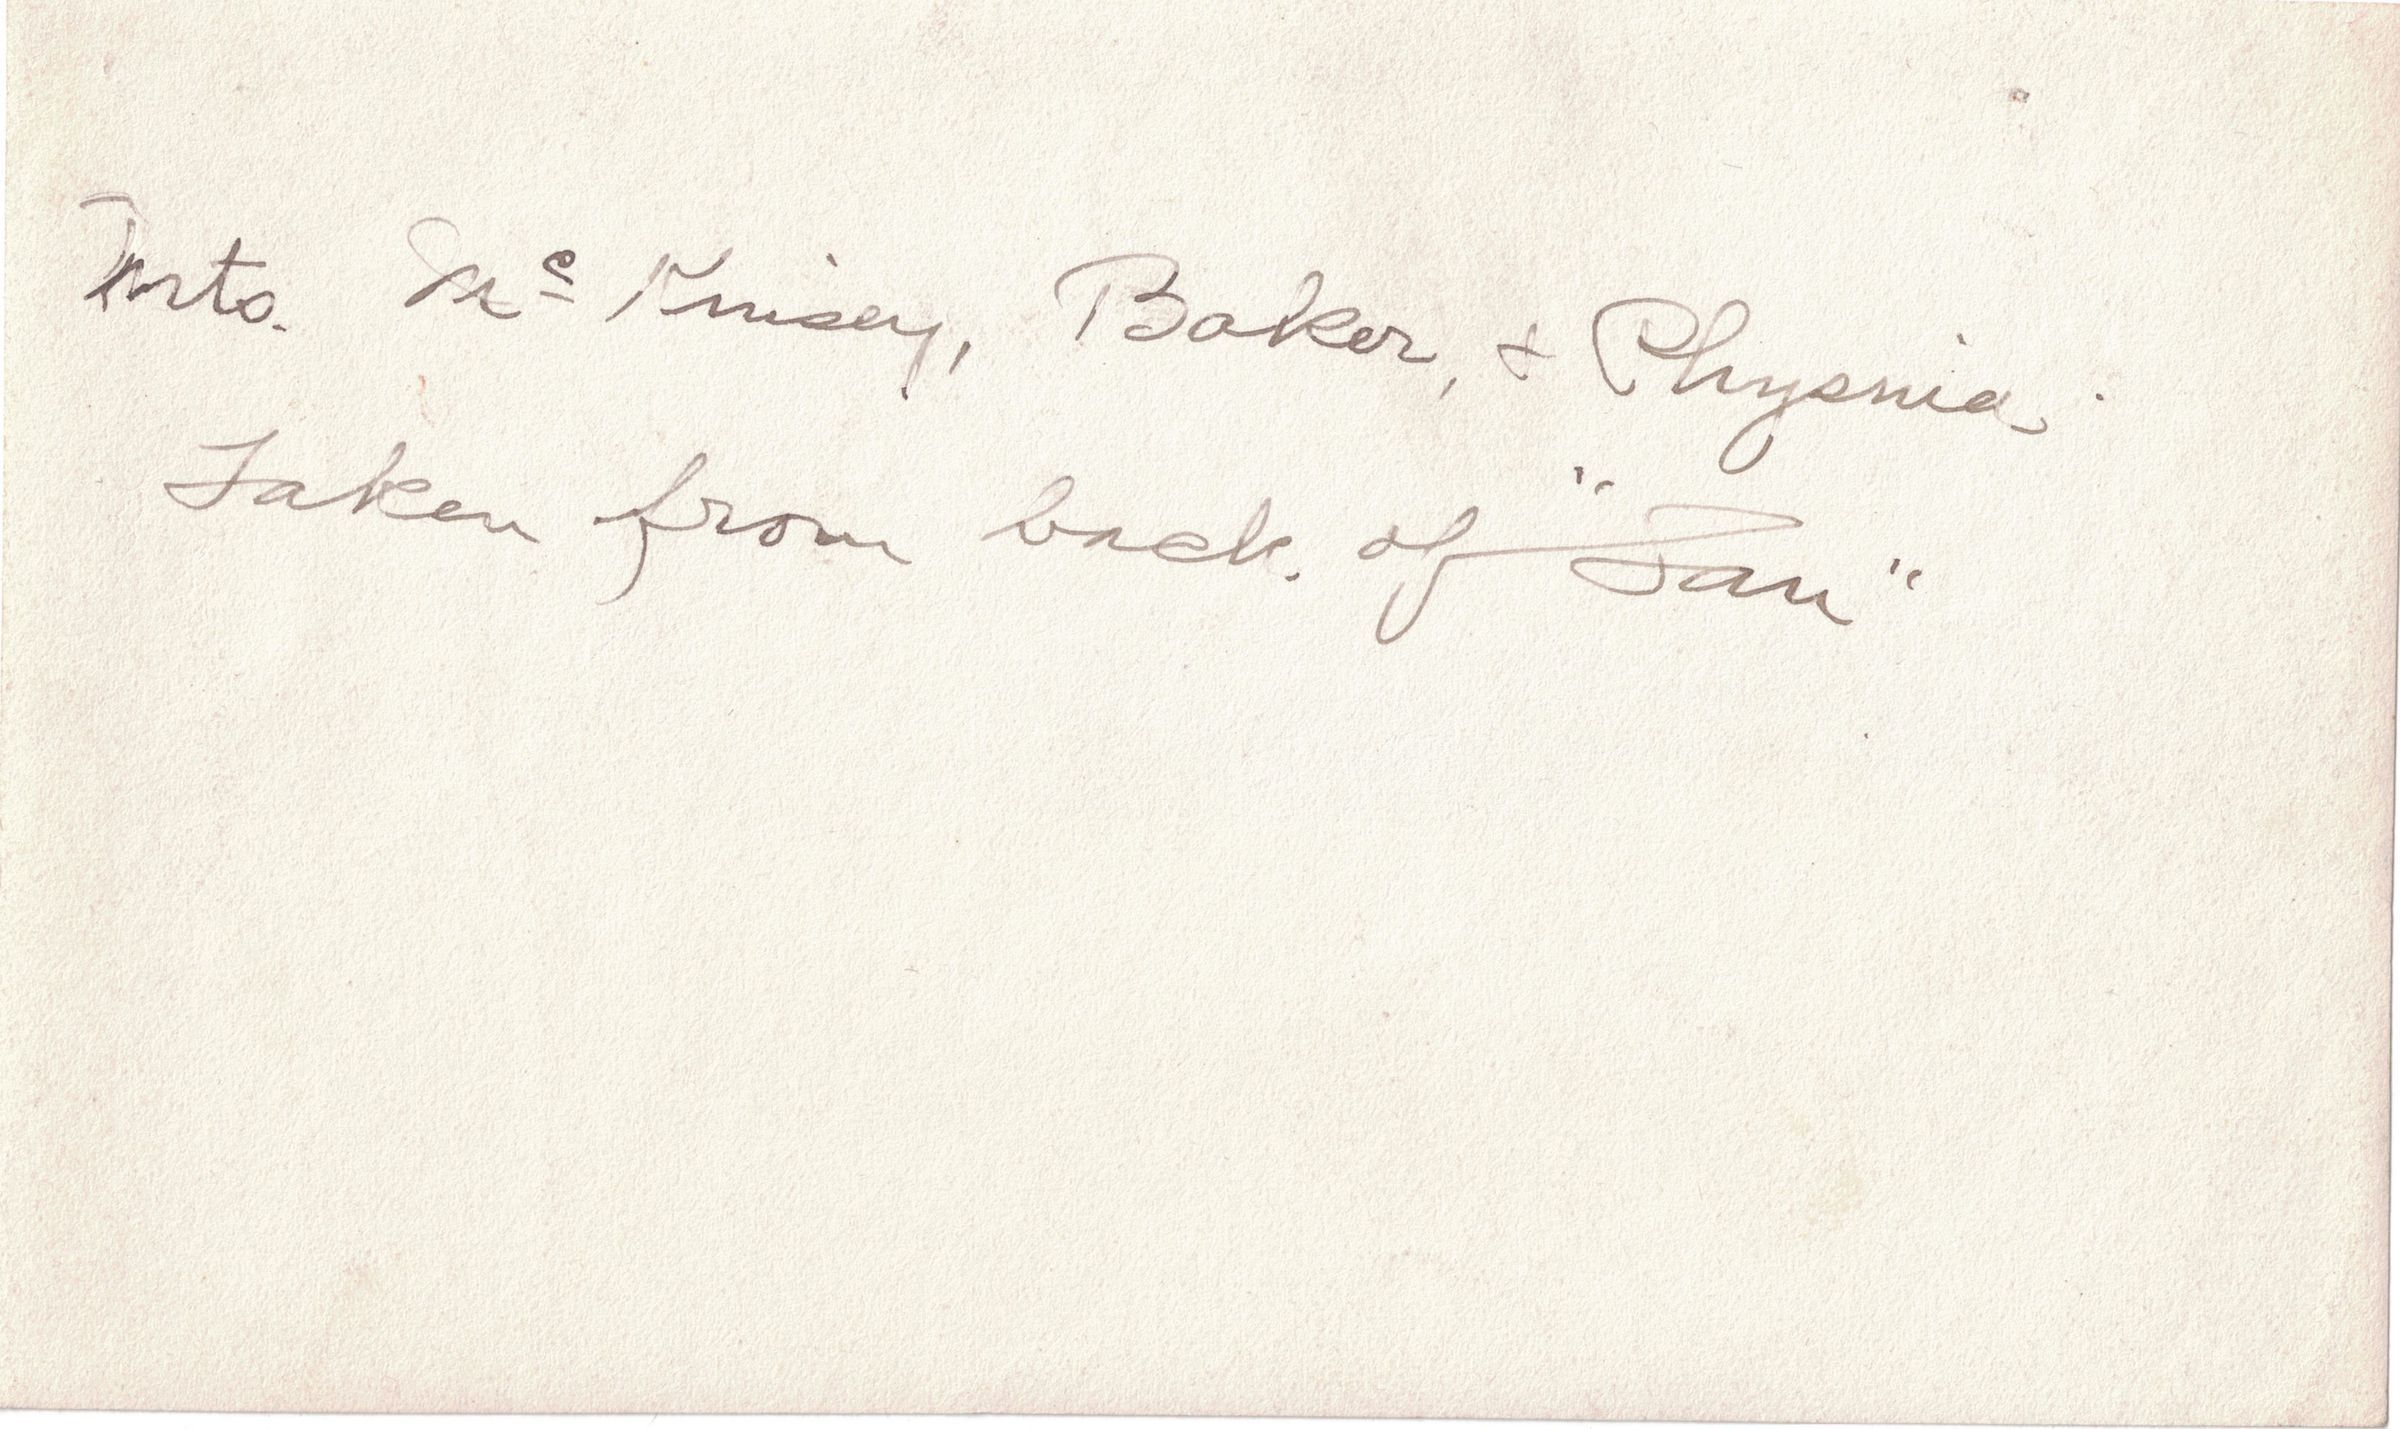 Mts. Mc Kinsey, Baker, + Physnia.
Taken from back of "San"